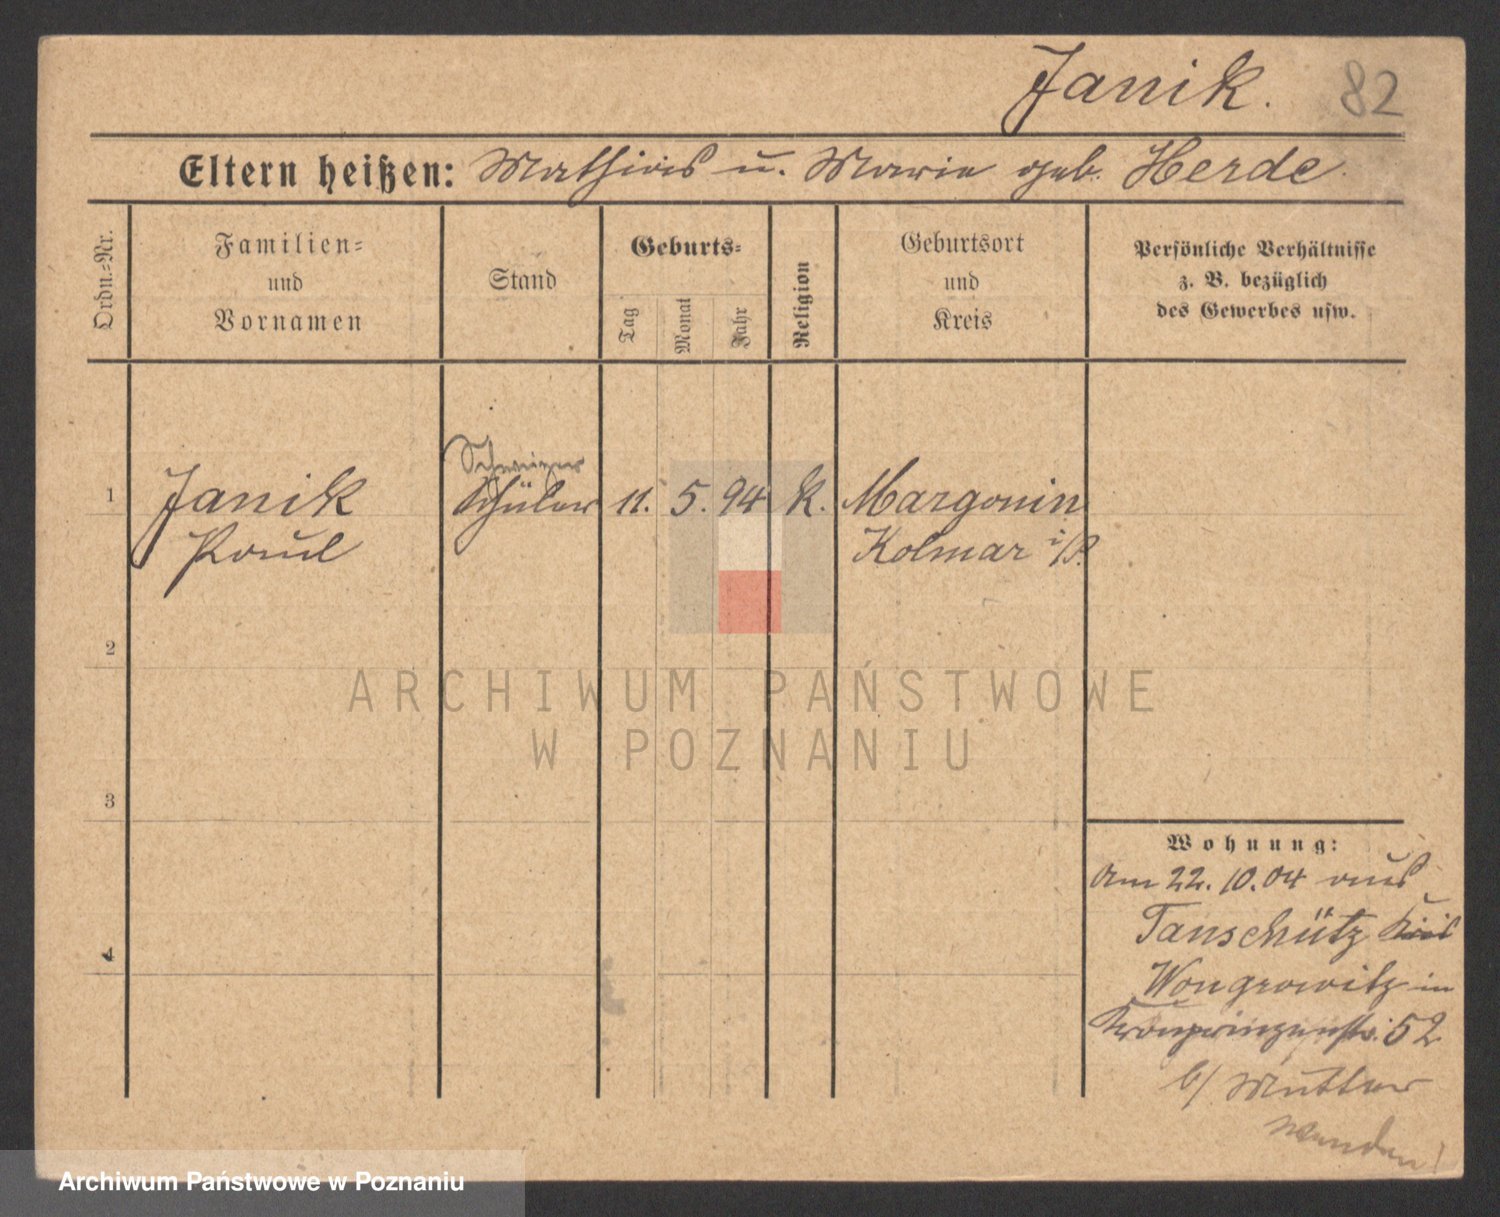 Janik. 82
Eltern heißen: Mathias u. Marie geb. Herde.
Ordn.=Nr.
Familien=
und
Vornamen
Stand
Geburts=
Tag
Monat
Jahr
Religion
Geburtsort
und
Kreis
Persönliche Verhältnisse
z. B. bezüglich
des Gewerbes usw.
1 Janik Schüler 11. 5. 94 K. Margonin
Paul Kolmar i/P.
2
3
4
Wohnung:
Am 22. 10. 04 aus
Tanschütz Kreis
Wongrowitz in
Kronprinzenstr. 52
b/ Mutter
wenden!
ARCHIWUM PAŃSTWOWE
W POZNANIU
Archiwum Państwowe w Poznaniu